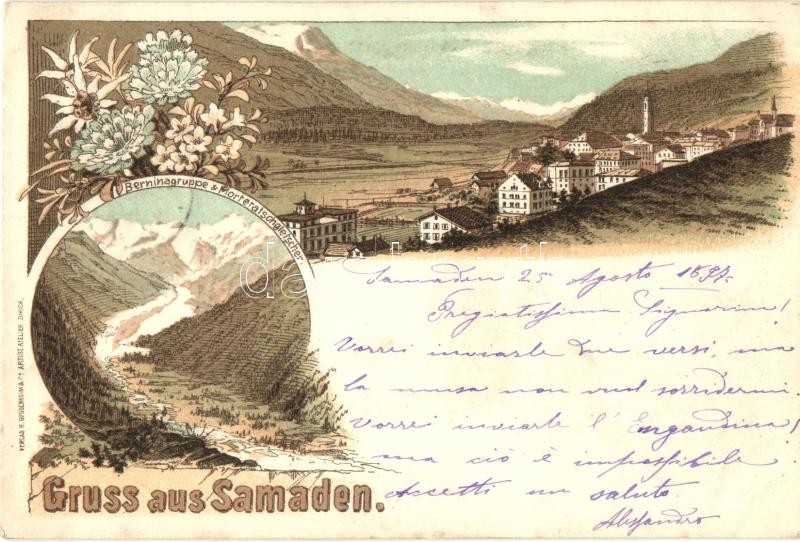 Berninagruppe & Morteratschgletscher.
Samaden 25 Agosto 1899.
Pregiatissima Signorina!
Vorrei inviarle due versi, ma
la musa non vuol sorridermi.
Vorrei inviarle l'Engandina!
ma ciò è impossibile
Accetti un saluto
Alessandro
Gruss aus Samaden.
VERLAG H. GUGGENHEIM & Co. ARTIST. ATELIER, ZÜRICH.
darabanth